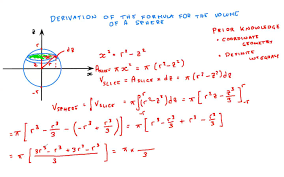 DERIVATION OF THE FORMULA FOR THE VOLUME
OF A SPHERE
PRIOR KNOWLEDGE
• COORDINATE
GEOMETRY
• DEFINITE
INTEGRAL
z
r
dz
-r
x² = r² - z²
πx² = π(r² - z²)
V_SLICE = A_SLICE × dz = π(r² - z²)dz
V_SPHERE = ∫ V_SLICE = π ∫ (r² - z²) dz = π [r²z - z³/3]
= π [r³ - r³/3 - (-r³ + r³/3)] = π [r³ - r³/3 + r³ - r³/3]
= π [3r³ - r³ + 3r³ - r³ / 3] = π ×